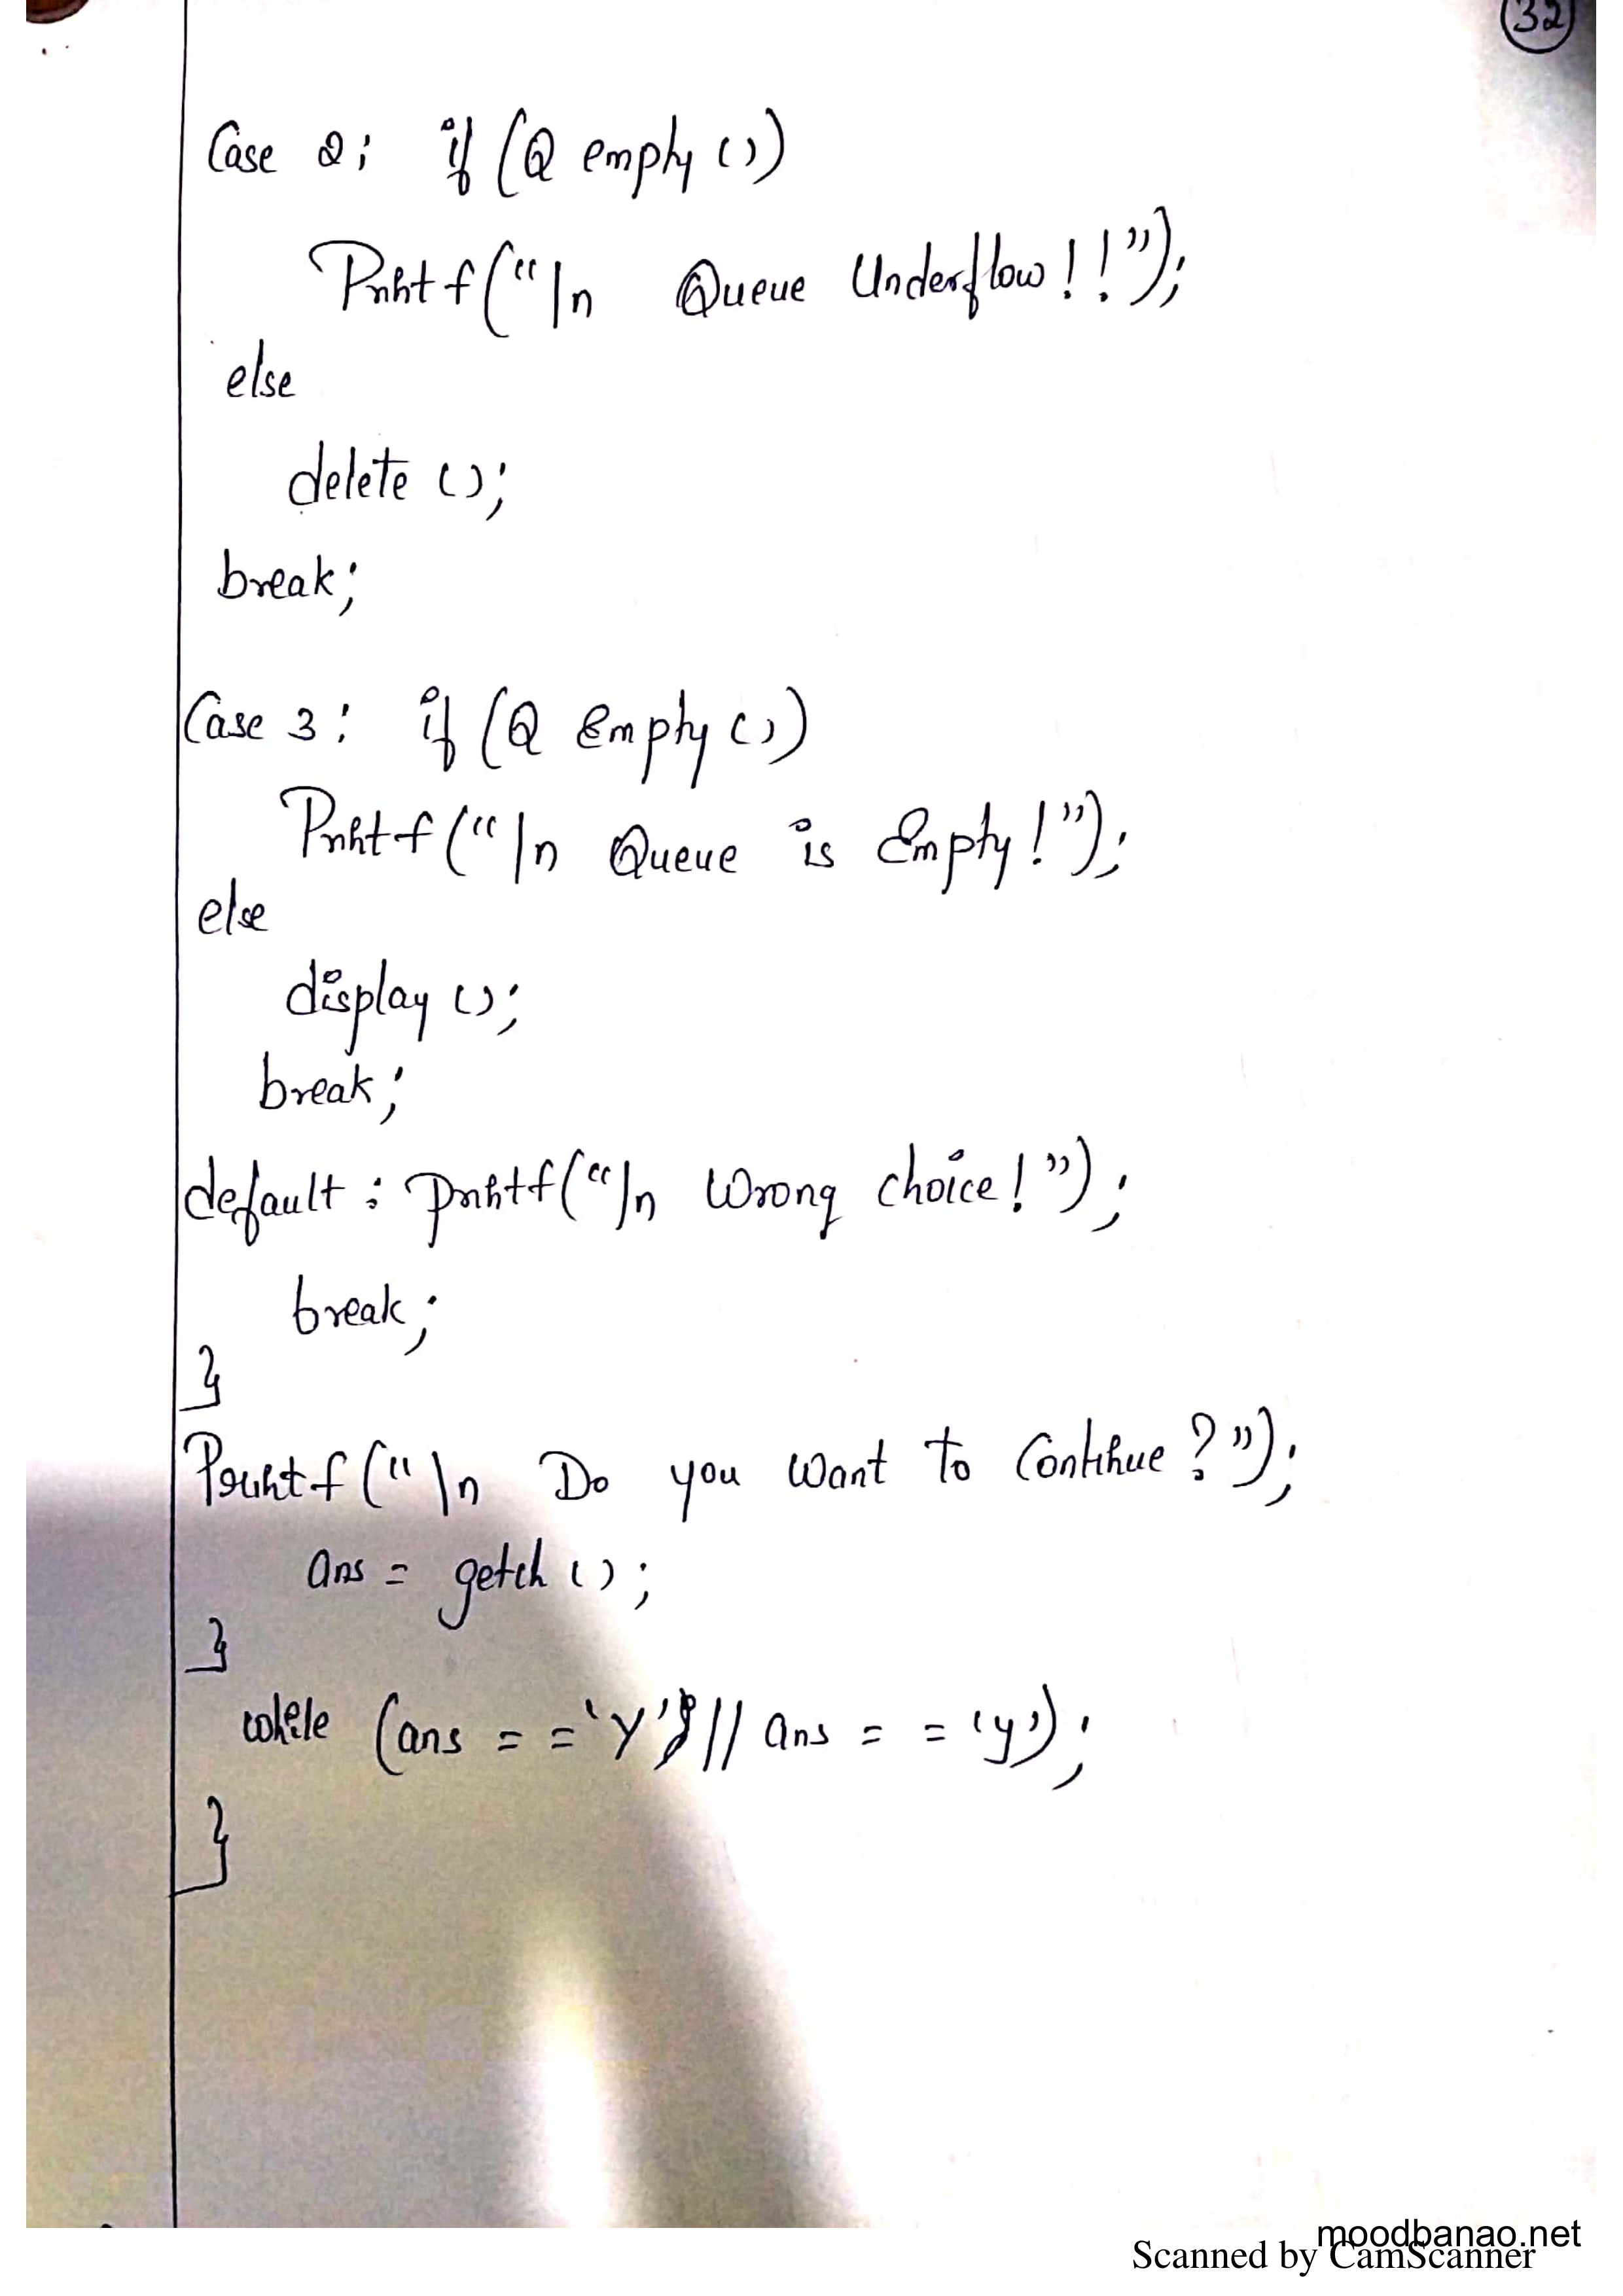 32
Case 2: if (Q empty ())
Printf("\n Queue Underflow!!");
else
delete ();
break;
Case 3: if (Q Empty ())
Printf("\n Queue is Empty!");
else
display ();
break;
default: printf("\n Wrong choice!");
break;
}
Printf("\n Do you want to Continue?");
ans = getch ();
}
while (ans = = 'Y' || ans = = 'y');
}
moodbanao.net
Scanned by CamScanner